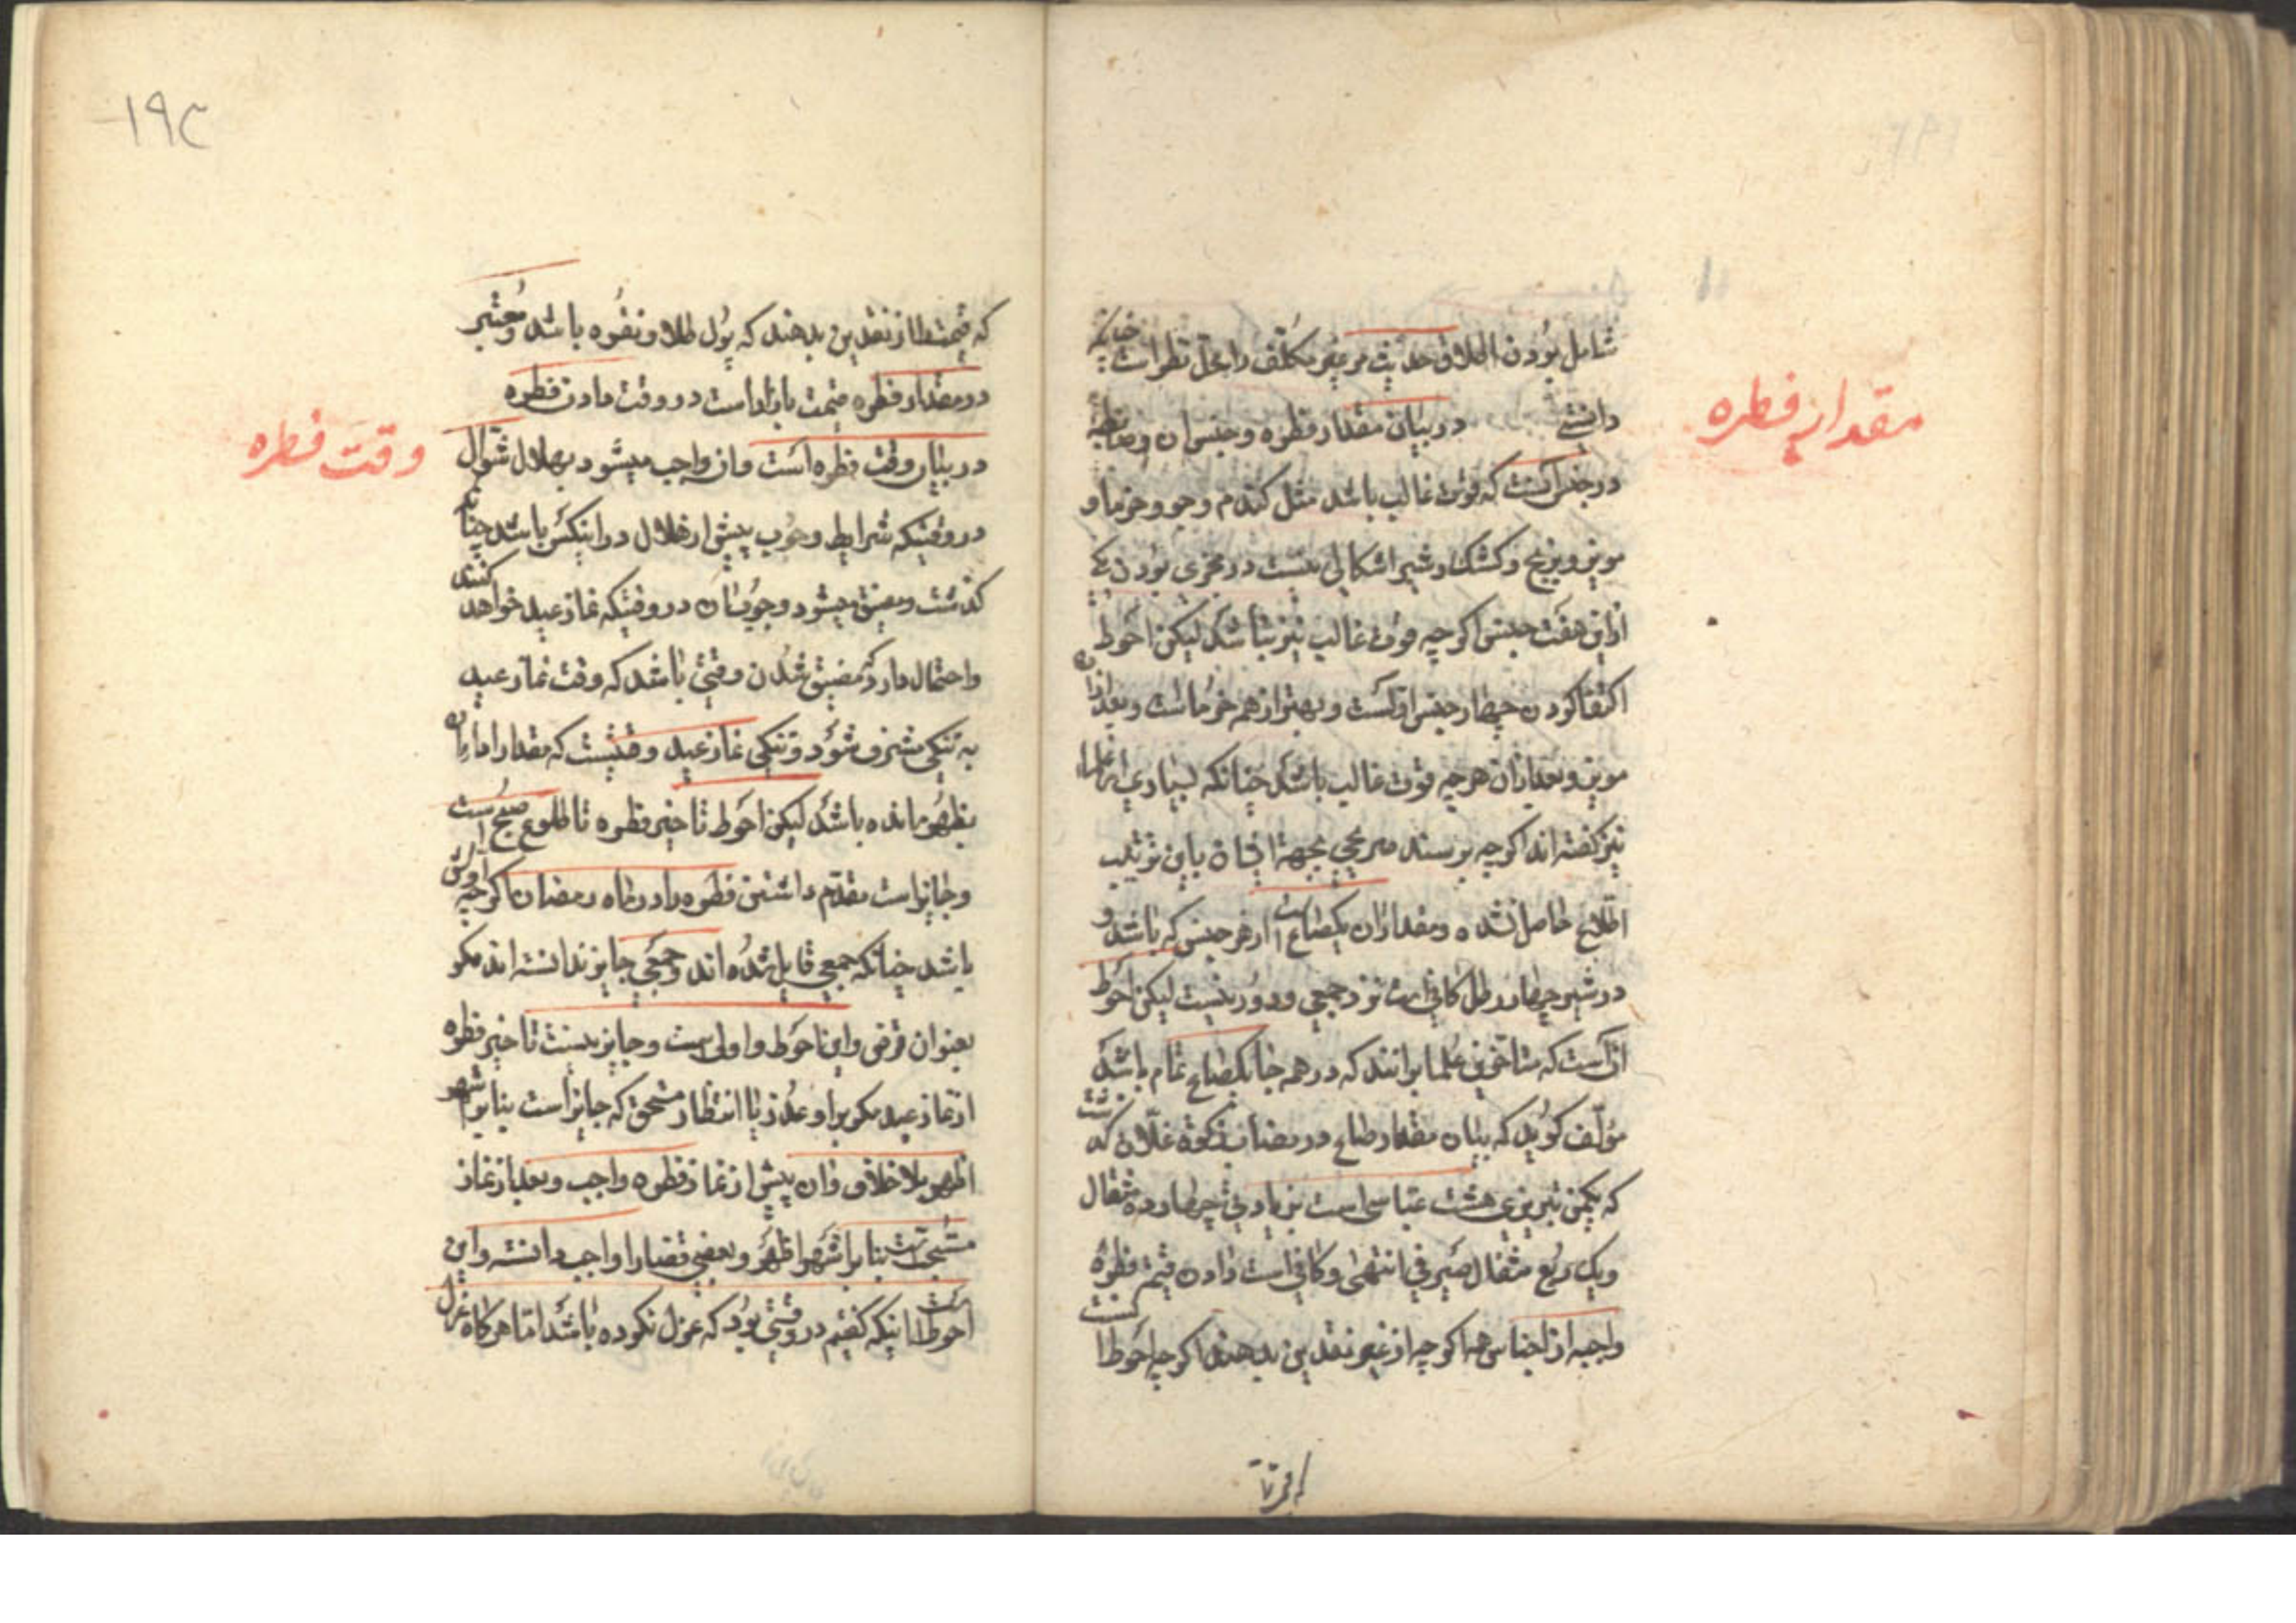 شامل بودن اطلاق حدیث مر غیر مکلف را محل نظر است چنانکه
مقدار فطره
دانستی در بیان مقدار فطره و جنس ان وضابطه
در جنس آنست که قوت غالب باشد مثل کندم وجو وخرما و
مویز وبرنج وکشک وشیر اشکالی نیست در مجزی بودن یکی
ازاین هفت جنس اکرچه قوت غالب نیز نباشد لیکن احوط
اکتفا کردن چهار جنس اولست وبهتر از همه خرماست وبعد ازان
مویز وبعد ازان هرچه قوت غالب باشد چنانکه بسیاری از علما
نیز کفته اند اکرچه بر سند صریحی بجهة ایشان باین ترتیب
اطلاع حاصل نشده ومقدار ان یکصاع است از هر جنس که باشد و
در شیر چهار رطل کافی است نزد جمعی ودور نیست لیکن احوط
آنست که متاخرین علما برانند که در همه جا یکصاع تمام باشد
مؤلف کوید که بیان مقدار صاع در مضان زکوة غلات کذشت
که یکمن تبریزی هشت عباسی است بزیادتی چهارده مثقال
ویک ربع مثقال صیرفی انتهی وکافی است دادن قیمة فطرهٔ
واجبه از اجناس همه اکرچه از غیر نقدین بدهند اکرچه احوط انست
که قیمت
۱۹۳
که قیمت را از نقدین بدهند که پول طلا ونقره باشد ومعتبر
در مقدار فطره قیمت بازار است در وقت دادن فطره
وقت فطره
در بیان وقت فطره است وان واجب میشود بهلال شوال
در وقتیکه شرایط وجوب پیش از هلال در اینکس باشد چنانکه
کذشت ومضیق میشود وجوب ان در وقتیکه نماز عید خواهد کنند
واحتمال دارد که مضیق شدن وقتی باشد که وقت نماز عید
به تنکی مشرف شود وتنکی نماز عید وقتیست که مقدار اداء ان
بظهر مانده باشد لیکن احوط تاخیر فطره تا طلوع صبح است
وجایز است مقدم داشتن فطره را در ماه رمضان اکرچه اولش
باشد چنانکه جمعی قایل شده اند وجمعی جایز ندانسته اند مکر
بعنوان قرض واین احوط واولی است وجایز نیست تاخیر فطره
از نماز عید مکر برای عذر یا انتظار مستحق که جایز است بنا بر اشهر
اظهر بلا خلاف وان پیش از نماز فطره واجب وبعد از نماز
مستحب است بنا بر اشهر واظهر وبعضی قضا را واجب دانسته واین
احوط است اینکه کفتیم در وقتی بود که عزل نکرده باشد اما هرکاه عزل